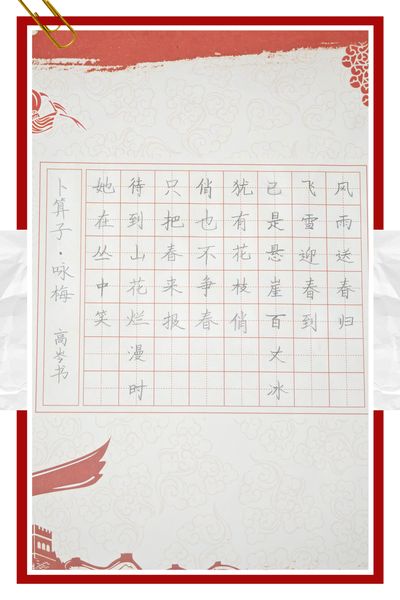 风雨送春归
飞雪迎春到
已是悬崖百丈冰
犹有花枝俏
俏也不争春
只把春来报
待到山花烂漫时
她在丛中笑
卜算子·咏梅 高岑书